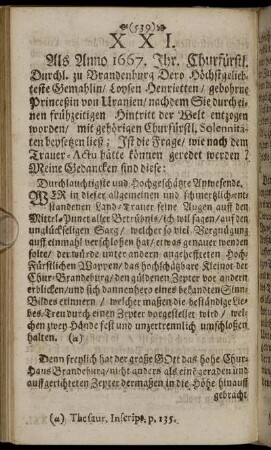 (539)
XXI.
Als Anno 1667. Ihr. Churfürstl.
Durchl. zu Brandenburg Dero Höchstgelieb-
teste Gemahlin/ Loysen Henrietten/ gebohrne
Princeßin von Uranien/ nachdem Sie durch ei-
nen frühzeitigen Hintritt der Welt entzogen
worden/ mit gehörigen Churfürstl. Solonnitä-
ten beysetzen ließ; Ist die Frage/ wie nach dem
Trauer-Actu hätte können geredet werden?
Meine Gedancken sind diese:
Durchlauchtigste und Hochgeschätzte Anwesende.
WER in dieser allgemeinen und schmertzlich entstandenen
Land-Trauer seine Augen auf den
Mittel-Punct aller Betrübnis/ ich wil sagen/ auf den
unglückseligen Sarg/ welcher so viel Vergnügung
auff einmahl verschlossen hat/ etwas genauer wenden
solte/ der würde unter andern angehefteten Hoch-
Fürstlichen Wappen/ das hochschätzbare Kleinot der
Chur-Brandeburg/ den güldenen Zepter vor andern
erblicken/ und sich dannenhero eines bekandten Sinn-
Bildes erinnern/ welcher maßen die beständige Lie-
bes-Treu durch einen Zepter vorgestellet wird/ wel-
chen zwey Hände fest und unzertrennlich umschloßen
halten. (a)
Denn freylich hat der große GOtt das hohe Chur-
Haus Brandeburg/ nicht anders als einen geraden und
auffgerichteten Zepter dermaßen in die Höhe hinauff
gebracht
(a) Thesaur. Inscript. p. 135.